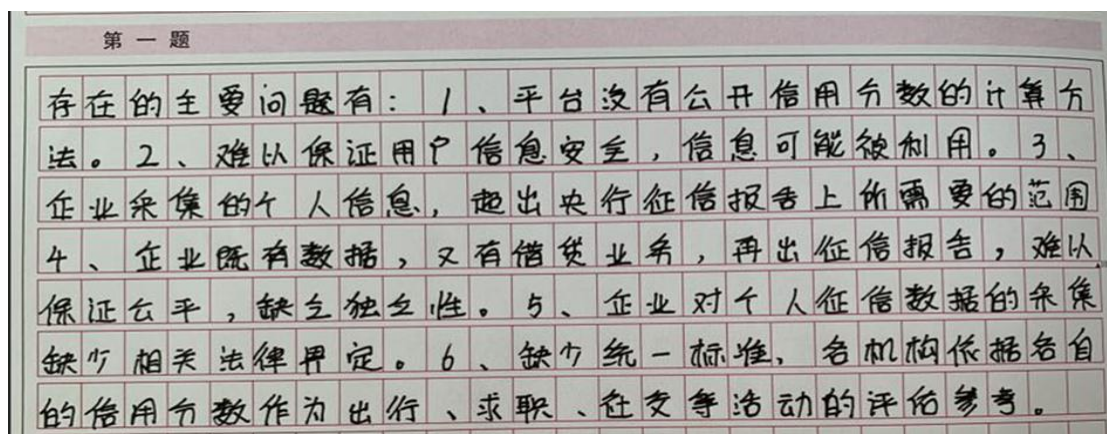 第一题
存在的主要问题有：1、平台没有公开信用分数的计算方
法。2、难以保证用户信息安全，信息可能被利用。3、
企业采集的个人信息，超出央行征信报告上所需要的范围
4、企业既有数据，又有借贷业务，再出征信报告，难以
保证公平，缺乏独立性。5、企业对个人征信数据的采集
缺少相关法律界定。6、缺少统一标准、各机构依据各自
的信用分数作为出行、求职、社交等活动的评估参考。